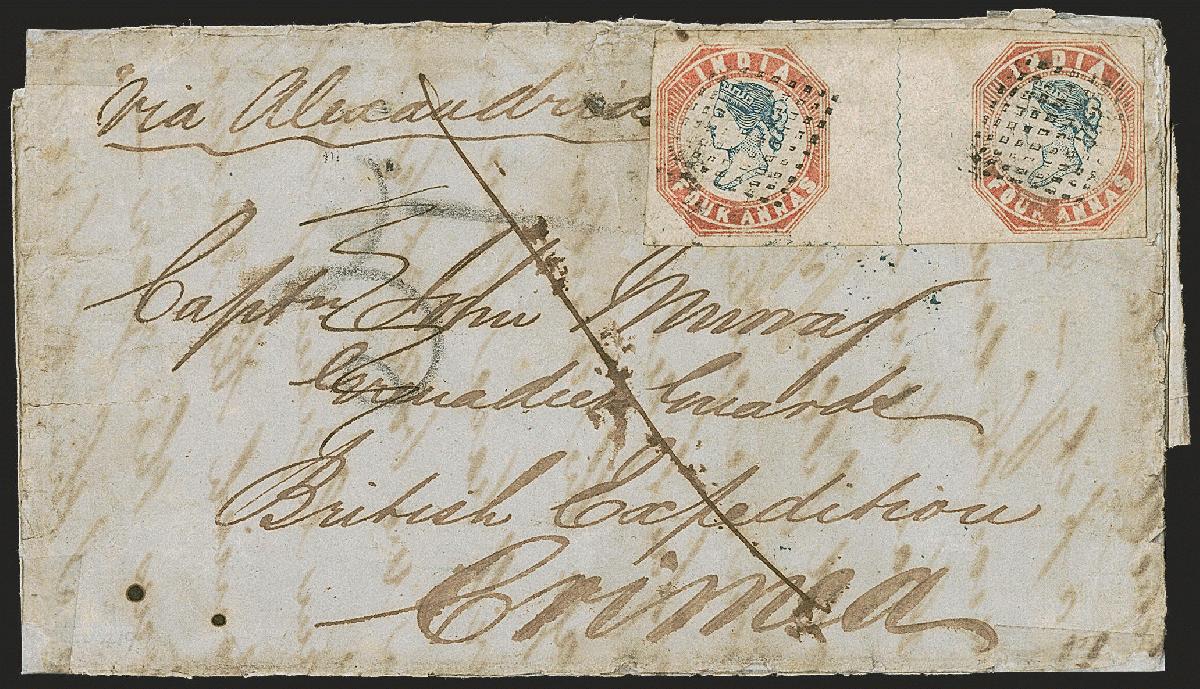 via Alexandria
INDIA
FOUR ANNAS
INDIA
FOUR ANNAS
Captn John Murray
Grenadier Guards
British Expedition
Crimea